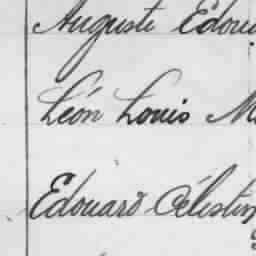 Auguste Edou
Léon Louis M
Edouard Célestin